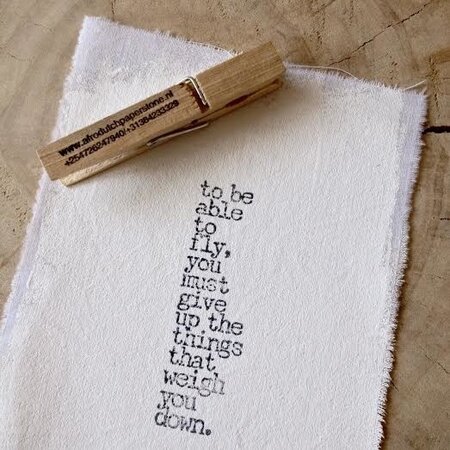 www.afrodutchpaperstone.nl
+254726247940/+31384233329
to be
able
to
fly,
you
must
give
up the
things
that
weigh
you
down.